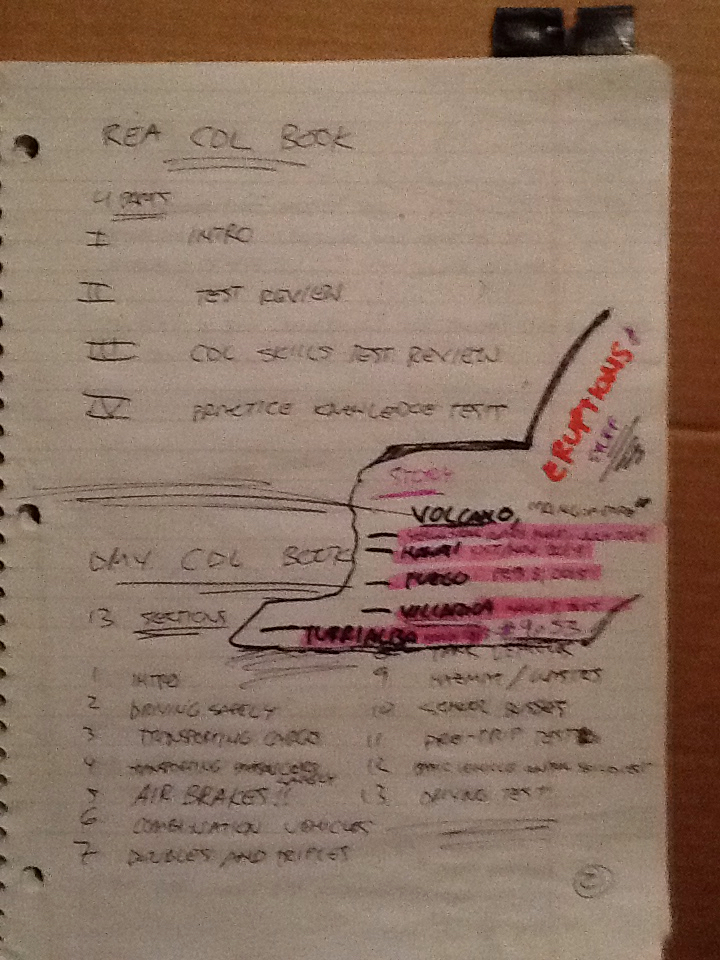 REA CDL BOOK
4 PARTS
I INTRO
II TEST REVIEW
III CDL SKILLS TEST REVIEW
IV PRACTICE KNOWLEDGE TEST
ERUPTIONS
STORY
VOLCANO,
HAWAI'I OCT/NOV 2014
FUEGO FEB 8, 2015
VILLARICA
TURRIALBA
DMV CDL BOOK
13 SECTIONS
1 INTRO
2 DRIVING SAFELY
3 TRANSPORTING CARGO
4 TRANSPORTING PASSENGERS SAFELY
5 AIR BRAKES!!
6 COMBINATION VEHICLES
7 DOUBLES AND TRIPLES
9 HAZMAT / WASTES
10 SCHOOL BUSSES
11 PRE-TRIP TEST
12
13 DRIVING TEST
2